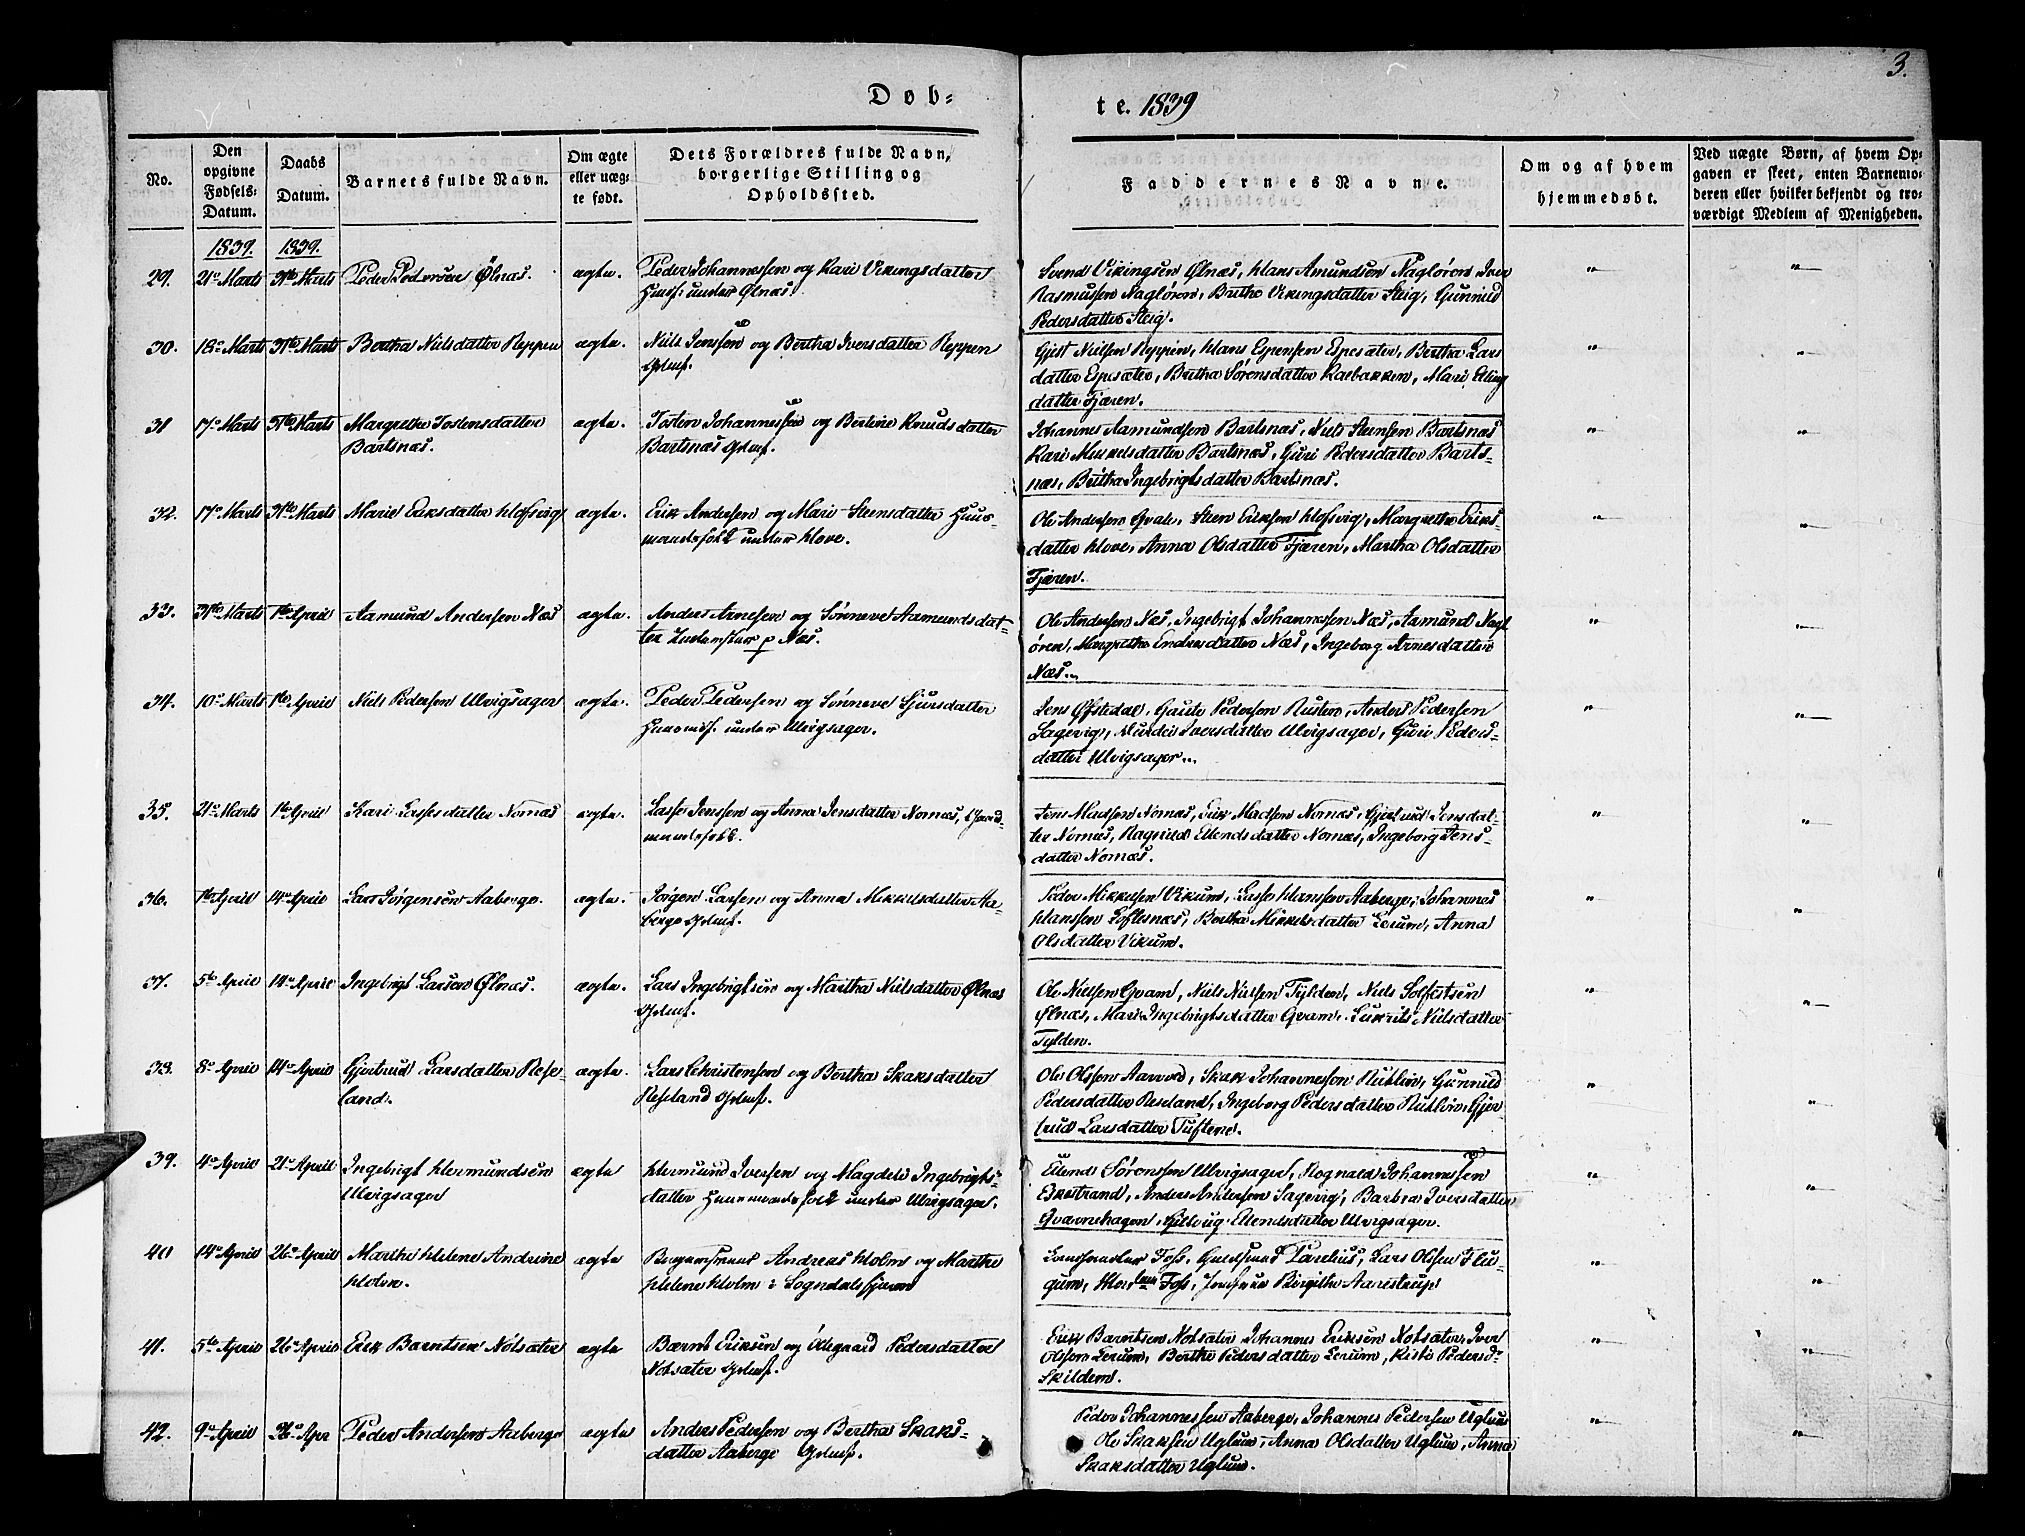 3.
Døb-
te. 1839
No.
Den opgivne Fødsels-Datum.
Daabs Datum.
Barnets fulde Navn.
Om ægte eller uæg-te født.
Dets Forældres fulde Navn, borgerlige Stilling og Opholdssted.
Faddernes Navne.
Om og af hvem hjemmedøbt.
Ved uægte Børn, af hvem Op-gaven er skeet, enten Barnemo-deren eller hvilket bekjendt og tro-værdigt Medlem af Menigheden.
1839. 1839.
29. 21de Marts 31te Marts Peder Pedersen Ølnæs. ægte. Peder Johannessen og Kari Vikingsdatter
Huusf. under Ølnæs.
Svend Vikingsen Ølnæs, Hans Amundsen Nagløren, Iver
Rasmussen Nagløren, Brithe Vikingsdatter Steig, Gunnild
Pedersdatter Steig.
30. 18de Marts 31te Marts Bertha Nielsdatter Reppen ægte. Niels Jenssen og Bertha Iversdatter Reppen
Gjest Nielsen Reppen, Hans Espensen Espesæter, Bertha Lars
datter Espesæter, Brithe Sørensdatter Kalbakken, Mari Elling
datter Fjæren.
31 17de Marts 31te Marts Margrethe Tostensdatter
Bartsnæs. ægte. Tosten Johannessen og Berline Knudsdatter
Bartsnæs
Johannes Aamundsen Bartsnæs, Niels Steensen Bartsnæs
Kari Mikkelsdatter Bartsnæs, Guri Pedersdatter Barts-
næs, Brithe Ingebrigtsdatter Bartsnæs.
32. 17de Marts 31te Marts Marie Eriksdatter Hofsvig ægte. Erik Andersen og Mari Steensdatter Huus-
mandsfolk under Hove.
Ole Andersen Qvale, Steen Eriksen Hofsvig, Margrethe Eriks
datter Hove, Anna Olsdatter Fjæren, Martha Olsdatter
Fjæren.
33. 31te Marts 1ste April Aamund Andersen Næs ægte. Anders Arnesen og Sønneve Aamundsdat-
ter Næs.
Ole Andersen Næs, Ingebrigt Johannessen Næs, Aamund Nagl
øren, Margrethe Endresdatter Næs, Ingeborg Arnesdatter
Næs.
34. 10de Marts 1ste April Niels Pedersen Ulvigsager ægte. Peder Pedersen og Sønneve Sjursdatter
Huusmdsf. under Ulvigsager.
Jens Øfstedal, Gaute Pedersen Rusten, Anders Pedersen
Sagevig, Iversdatter Ulvigsager, Guri Peders-
datter Ulvigsager
35. 21de Marts 1ste April Kari Lassesdatter Nornæs ægte. Lasse Jenssen og Anna Jensdatter Nornæs, Gaard-
mandsfolk.
Jens Madsen Nornæs, Erik Madsen Nornæs, Gjertrud Jensdat-
ter Nornæs, Ragnild Ellendsdatter Nornæs, Ingeborg Jens-
datter Nornæs.
36. 1ste April 14de April Lars Jørgensen Aaberge. ægte. Jørgen Larsen og Anna Mikkelsdatter Aa-
berge
Peder Mikkelsen Vikum, Lasse Hanssen Aaberge, Johannes
Hanssen Loftesnæs, Bertha Mikkelsdatter Lerum, Anna
Olsdatter Vikum.
37. 5te April 14de April Ingebrigt Larsen Ølnæs. ægte. Lars Ingebrigtsen og Martha Nielsdatter Ølnæs
Ole Nielsen Qvam, Niels Nielsen Tylden, Niels Solfestsen
Ølnæs, Mari Ingebrigtsdatter Qvam, Nielsdatter
Tylden.
38. 8de April 14de April Gjertrud Larsdatter Rese-
land. ægte. Lars Christensen og Bertha Skaksdatter
Reseland
Ole Olssen Aarvold, Skak Johannessen Rutlin, Gunnild
Pedersdatter Reseland, Ingeborg Pedersdatter Rutlin, Gjer
trud Larsdatter Tuftene.
39. 4de April 21de April Ingebrigt Hermundsen
Ulvigsager ægte Hermund Iversen og Magdele Ingebrigts-
datter Huusmandsfolk under Ulvigsager.
Ellend Sørenssen Ulvigsager, Rognald Johannessen
Eskestrand, Anders Andersen Sagevig, Barbra Iversdatter
Qvarnehagen, Ellendsdatter Ulvigsager.
40 14de April 26de April Marthe Helene Andrine
Holm. ægte Andreas Holm og Marthe
Helene Holm i Sogndalsfjæren
Foss, Lars Olsen Flu-
gum, Foss, Jomfrue Birgithe Aarestrup
41. 5te April 26de April Erik Barntsen Notsæter ægte Bærnt Eriksen og Oldgaard Pedersdatter
Notsæter
Erik Barntsen Notsæter, Johannes Eriksen Notsæter, Iver
Olssen Lerum, Berthe Pedersdatter Lerum, Kisti Pedersd.
Skildem.
42. 9de April 26de Apr Peder Andersen Aaberge ægte Anders Pedersen og Bertha Skaks-
datter Aaberge
Peder Johannessen Aaberge, Johannes Pedersen Uglum
Ole Skaksen Uglum, Anna Olsdatter Uglum, Anna
Skaksdatter Uglum.